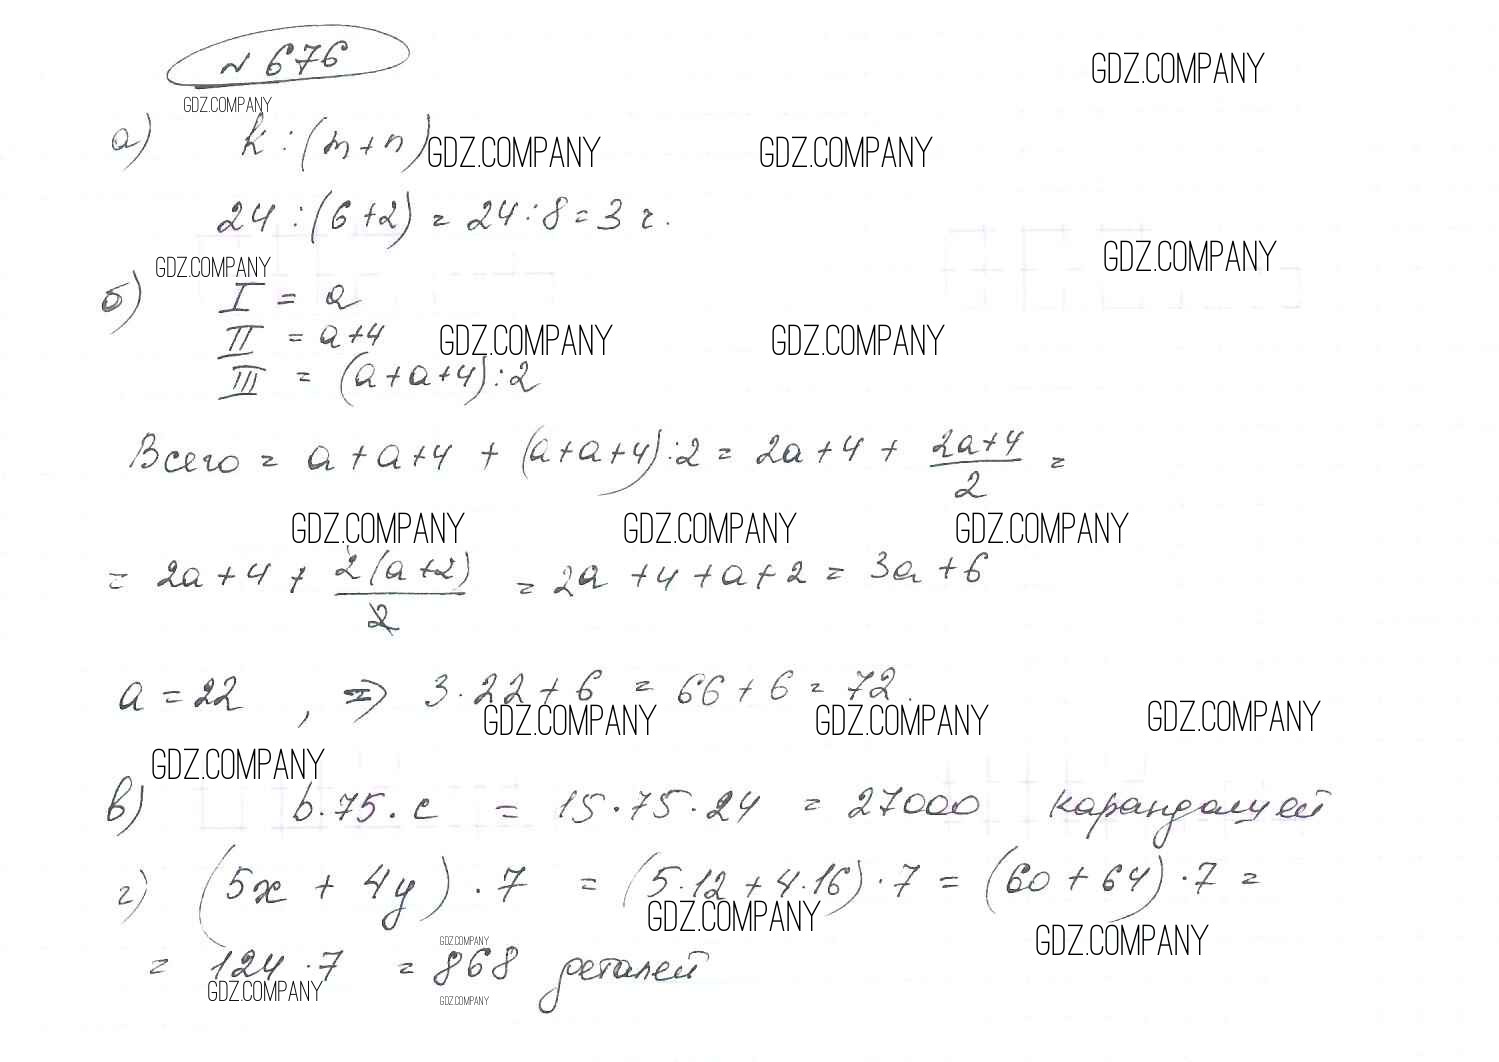 № 676
GDZ.COMPANY
GDZ.COMPANY
а) k : (m + n)
GDZ.COMPANY GDZ.COMPANY
24 : (6 + 2) = 24 : 8 = 3 г.
GDZ.COMPANY
GDZ.COMPANY
б) I = a
II = a + 4
GDZ.COMPANY GDZ.COMPANY
III = (a + a + 4) : 2
Всего = a + a + 4 + (a + a + 4) : 2 = 2a + 4 + \frac{2a + 4}{2} =
GDZ.COMPANY GDZ.COMPANY GDZ.COMPANY
= 2a + 4 + \frac{2(a + 2)}{2} = 2a + 4 + a + 2 = 3a + 6
a = 22 , => 3 · 22 + 6 = 66 + 6 = 72.
GDZ.COMPANY GDZ.COMPANY GDZ.COMPANY
GDZ.COMPANY
в) b · 75 · c = 15 · 75 · 24 = 27000 карандашей
г) (5x + 4y) · 7 = (5 · 12 + 4 · 16) · 7 = (60 + 64) · 7 =
GDZ.COMPANY
GDZ.COMPANY
GDZ.COMPANY
= 124 · 7 = 868 деталей
GDZ.COMPANY
GDZ.COMPANY